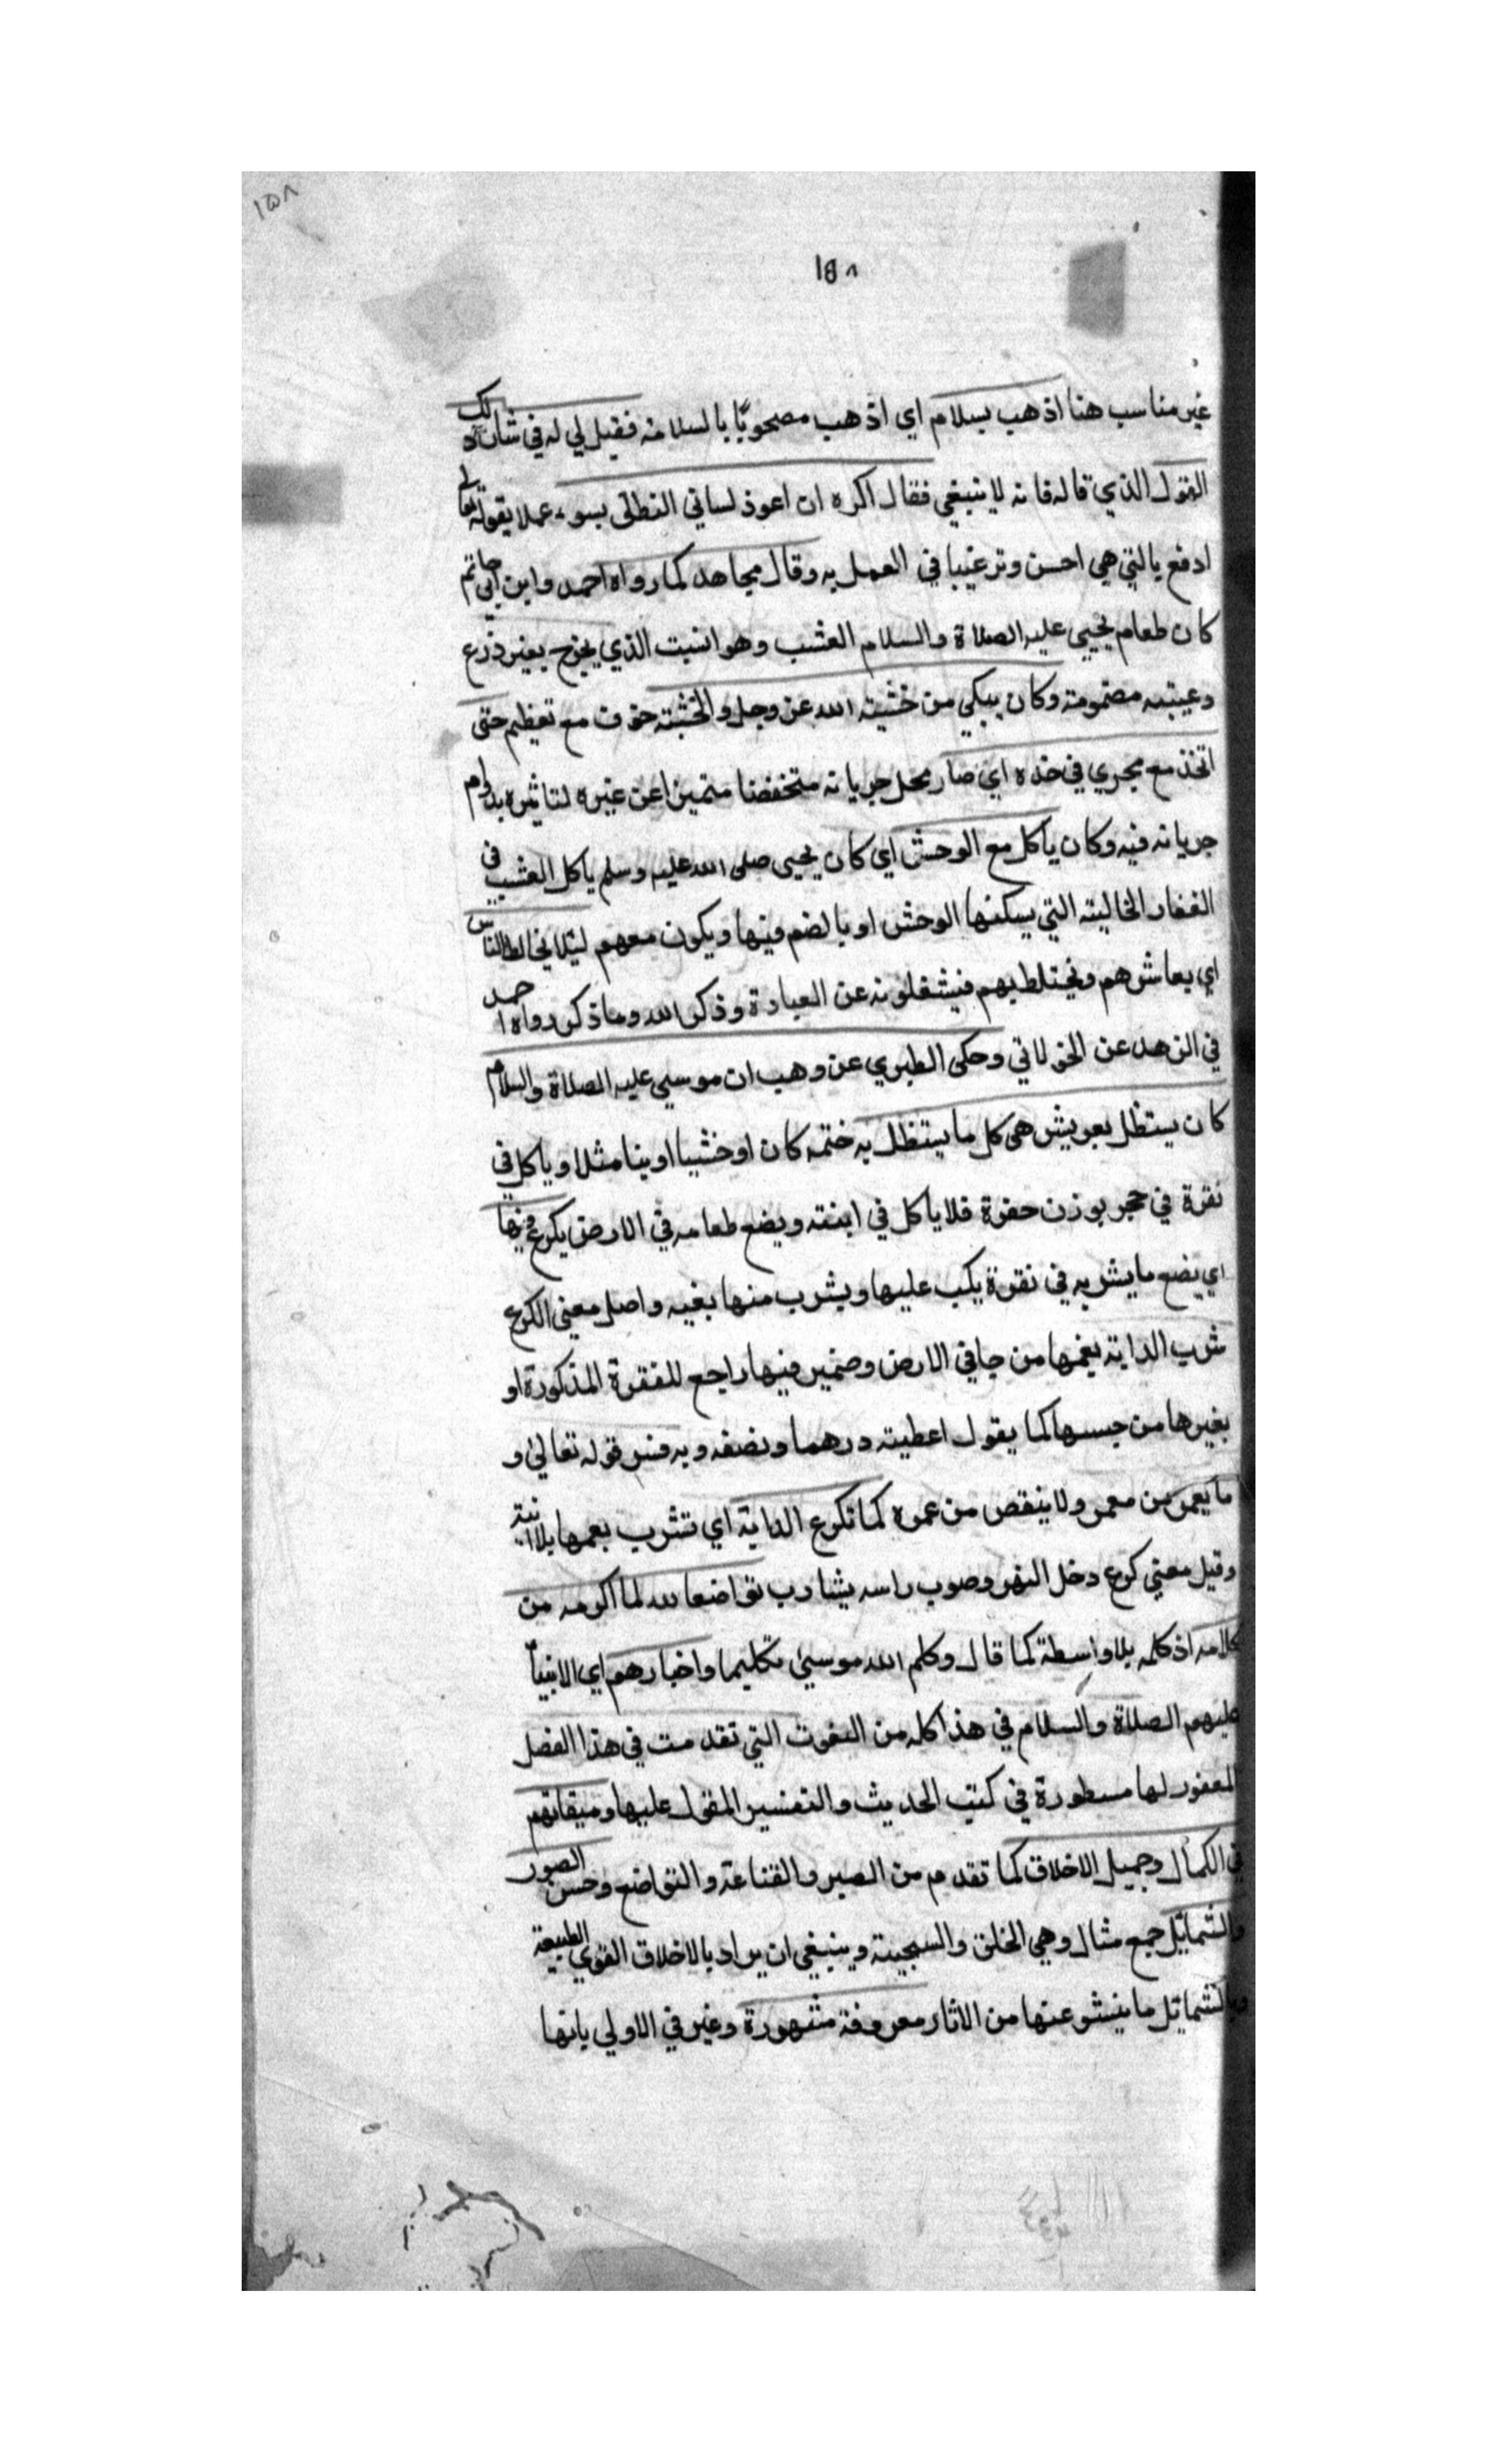 ١٥٨
١٥٨
غير مناسب هنا اذهب بسلام اي اذهب مصحوبًا بالسلامة فقيل لي له في شان ذلك
القول الذي قاله فانه لا ينبغي فقال اكره ان اعوذ لساني النطق بسوء عملا بقوله تعالى
ادفع بالتي هي احسن وترغيبا في العمل به وقال مجاهد كما رواه احمد وابن ابي حاتم
كان طعام يحيى عليه الصلاة والسلام العشب وهو النبت الذي يخرج بغير زرع
وعينه مضمومة وكان يبكي من خشية الله عز وجل والخشية خوف مع تعظيم حتى
اتخذ مع مجري في خده اي صار محل جريانه متخفضا متميزا عن غيره لتاثيره بدوام
جريانه فيه وكان ياكل مع الوحش اي كان يحيى صلى الله عليه وسلم ياكل العشب في
القفار الخالية التي يسكنها الوحش او بالضم فيها ويكون معهم ليلا يخالط الناس
اي يعاشرهم ويختلط بهم فيشغلونه عن العبادة وذكر الله وما ذكر رواه احمد
في الزهد عن الخولاني وحكى الطبري عن وهب ان موسى عليه الصلاة والسلام
كان يستظل بعريش هي كل ما يستظل به ختمه كان او خشبا او بنا مثلا وياكل في
نقرة في حجر بوزن حفرة فلا ياكل في ابنته ويضع طعامه في الارض يكرع فيها
اي يضع ما يشربه في نقرة يكب عليها ويشرب منها بفيه واصل معنى الكرع
شرب الداية بفمها من جافي الارض وضمير فيها راجع للفقرة المذكورة او
بغيرها من جسسها كما يقول اعطيته درهما ونصفه وبه فسر قوله تعالى و
ما يعمر من معمر ولا ينقص من عمره كما تكرع الداية اي تشرب بعمها بلا انية
وقيل معنى كرع دخل النهر وصوب راسه يشارب تواضعا لله لما اكرمه من
كلامه اذ كلمه بلا واسطة كما قال وكلم الله موسى تكليما واخبارهم اي الانبيآ
عليهم الصلاة والسلام في هذا كله من النعوت التي تقدمت في هذا الفصل
المعفور لها مسطورة في كتب الحديث والتفسير المقول عليها وميقاتهم
في الكمال وجميل الاخلاق كما تقدم من الصبر والقناعة والتواضع وحسن الصور
والشمائل جمع مثال وهي الخلق والسجية وينبغي ان يراد بالاخلاق القوي الطبيعة
وبالشمائل ما ينشو عنها من الاثار معروفة مشهورة وغير في الاولي بانها